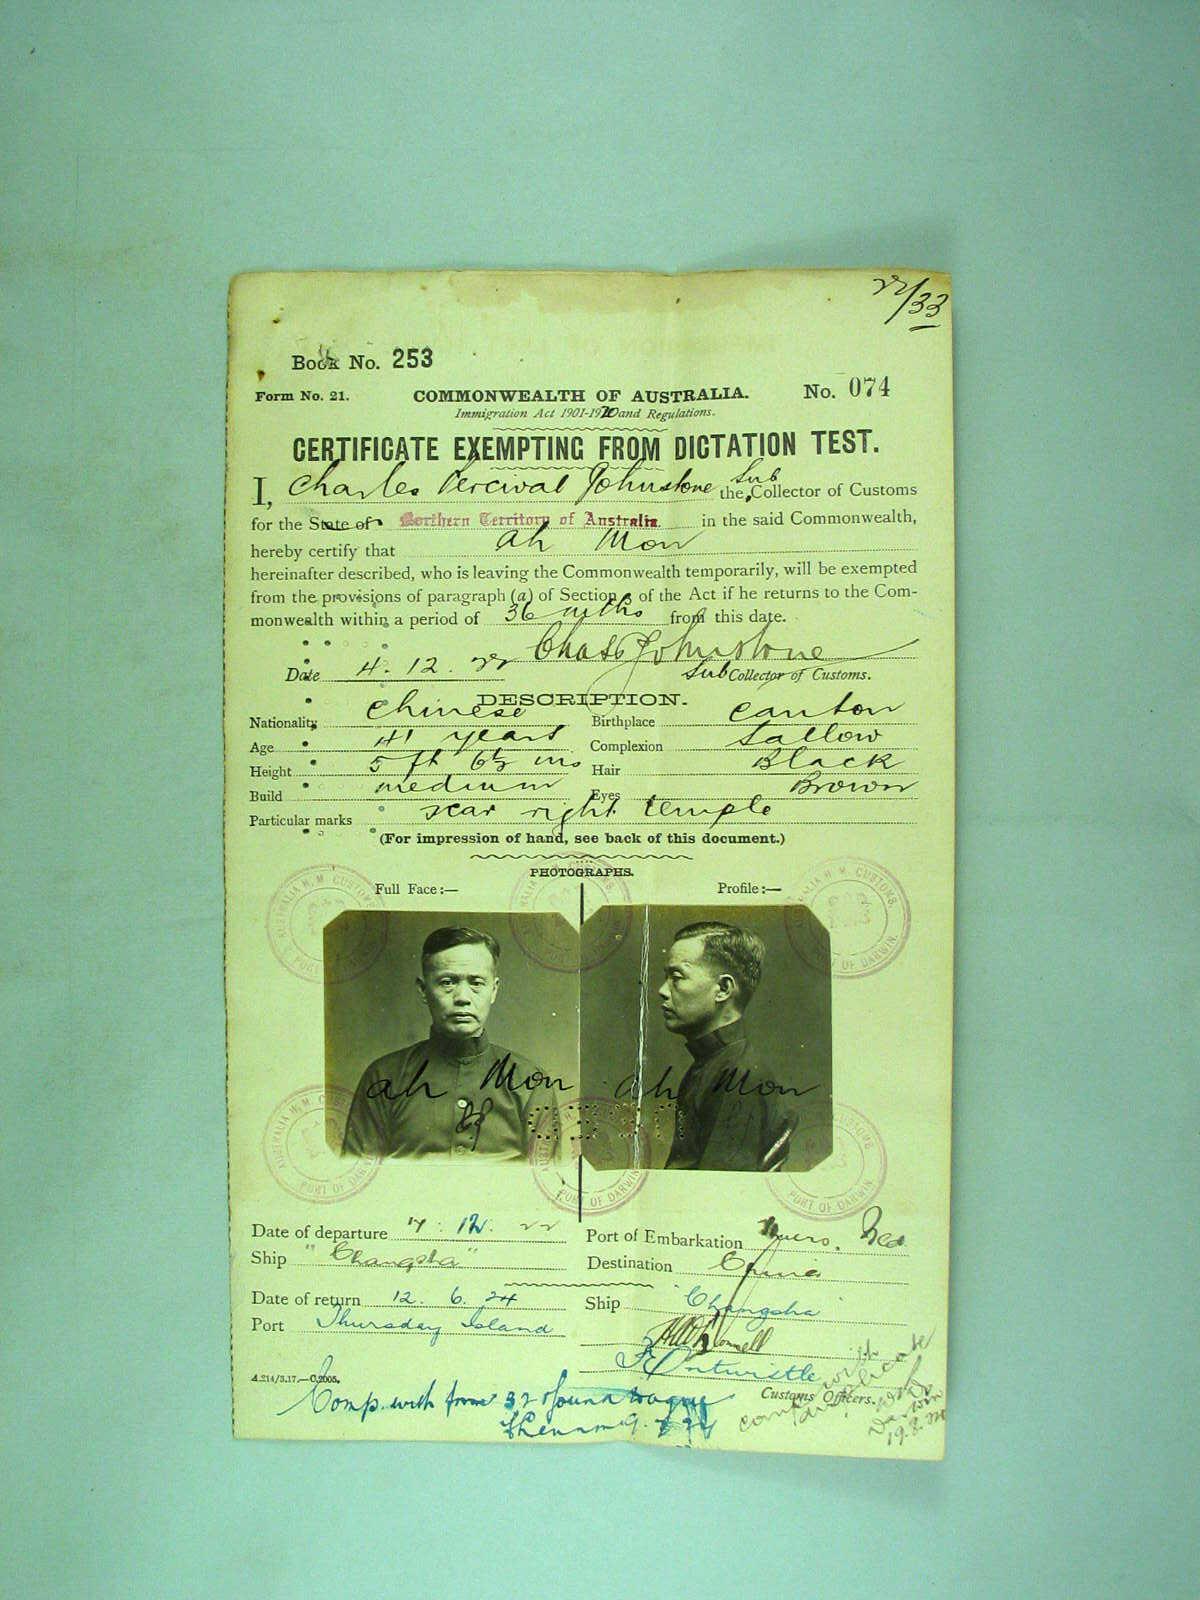 22/33
Book No. 253
Form No. 21. COMMONWEALTH OF AUSTRALIA. No. 074
Immigration Act 1901-1920 and Regulations.
CERTIFICATE EXEMPTING FROM DICTATION TEST.
I, Charles Percival Johnstone the Sub Collector of Customs
for the State of Northern Territory of Australia. in the said Commonwealth,
hereby certify that Ah Mon
hereinafter described, who is leaving the Commonwealth temporarily, will be exempted
from the provisions of paragraph (a) of Section 3 of the Act if he returns to the Com-
monwealth within a period of 36 mths from this date.
Chas Johnstone
Date 4. 12. 22 Sub Collector of Customs.
DESCRIPTION.
Nationality Chinese Birthplace Canton
Age 41 years Complexion Sallow
Height 5 ft 6½ ins Hair Black
Build medium Eyes Brown
Particular marks scar right temple
(For impression of hand, see back of this document.)
PHOTOGRAPHS.
Full Face:— Profile:—
AUSTRALIA H. M. CUSTOMS. PORT OF DARWIN
Ah Mon Ah Mon
Date of departure 7. 12. 22 Port of Embarkation
Ship "Changsha" Destination China
Date of return 12. 6. 24 Ship "Changsha"
Port Thursday Island
F Entwistle
A.214/3.17.—C.2005. Customs Officers.
Comp. with form 32
comp with
duplicate
Darwin
19.8.24